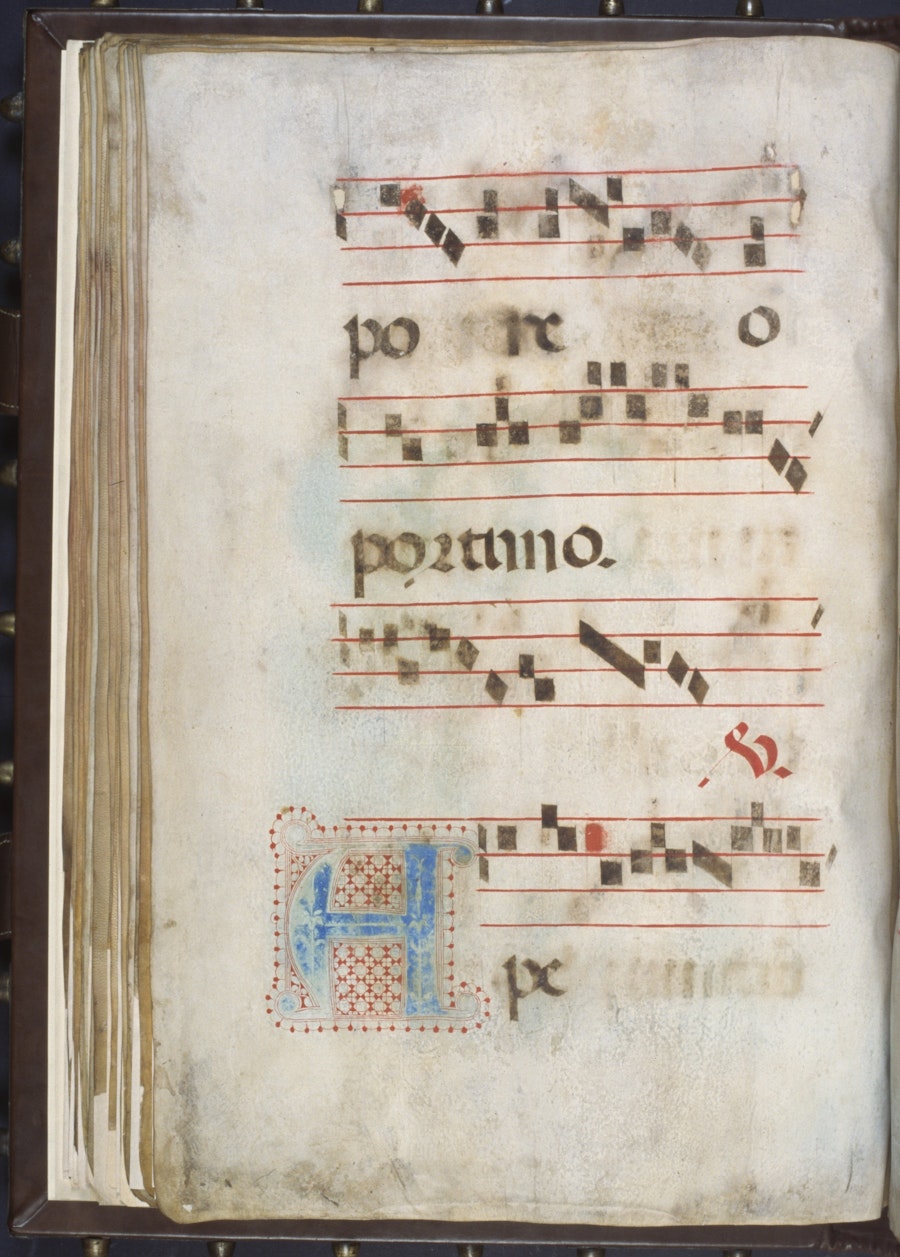 po re o
portuno.
V.
Ape